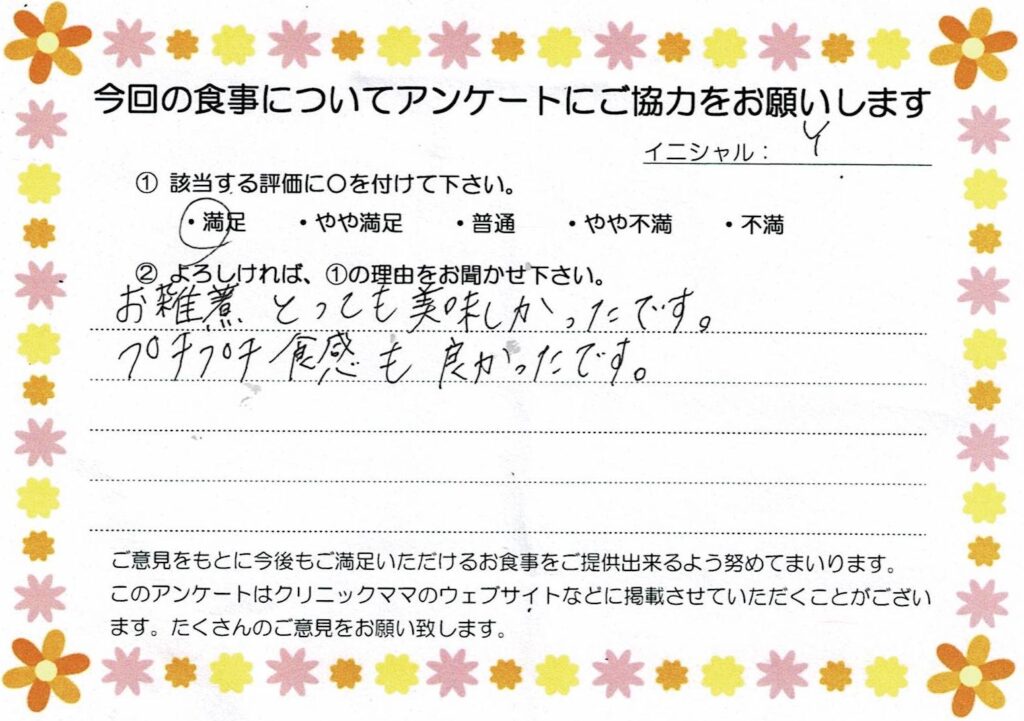 今回の食事についてアンケートにご協力をお願いします
イニシャル： Y
① 該当する評価に〇を付けて下さい。
・満足 ・やや満足 ・普通 ・やや不満 ・不満
② よろしければ、①の理由をお聞かせ下さい。
お雑煮 とっても美味しかったです。
プチプチ食感も良かったです。
ご意見をもとに今後もご満足いただけるお食事をご提供出来るよう努めてまいります。
このアンケートはクリニックママのウェブサイトなどに掲載させていただくことがござい
ます。たくさんのご意見をお願い致します。